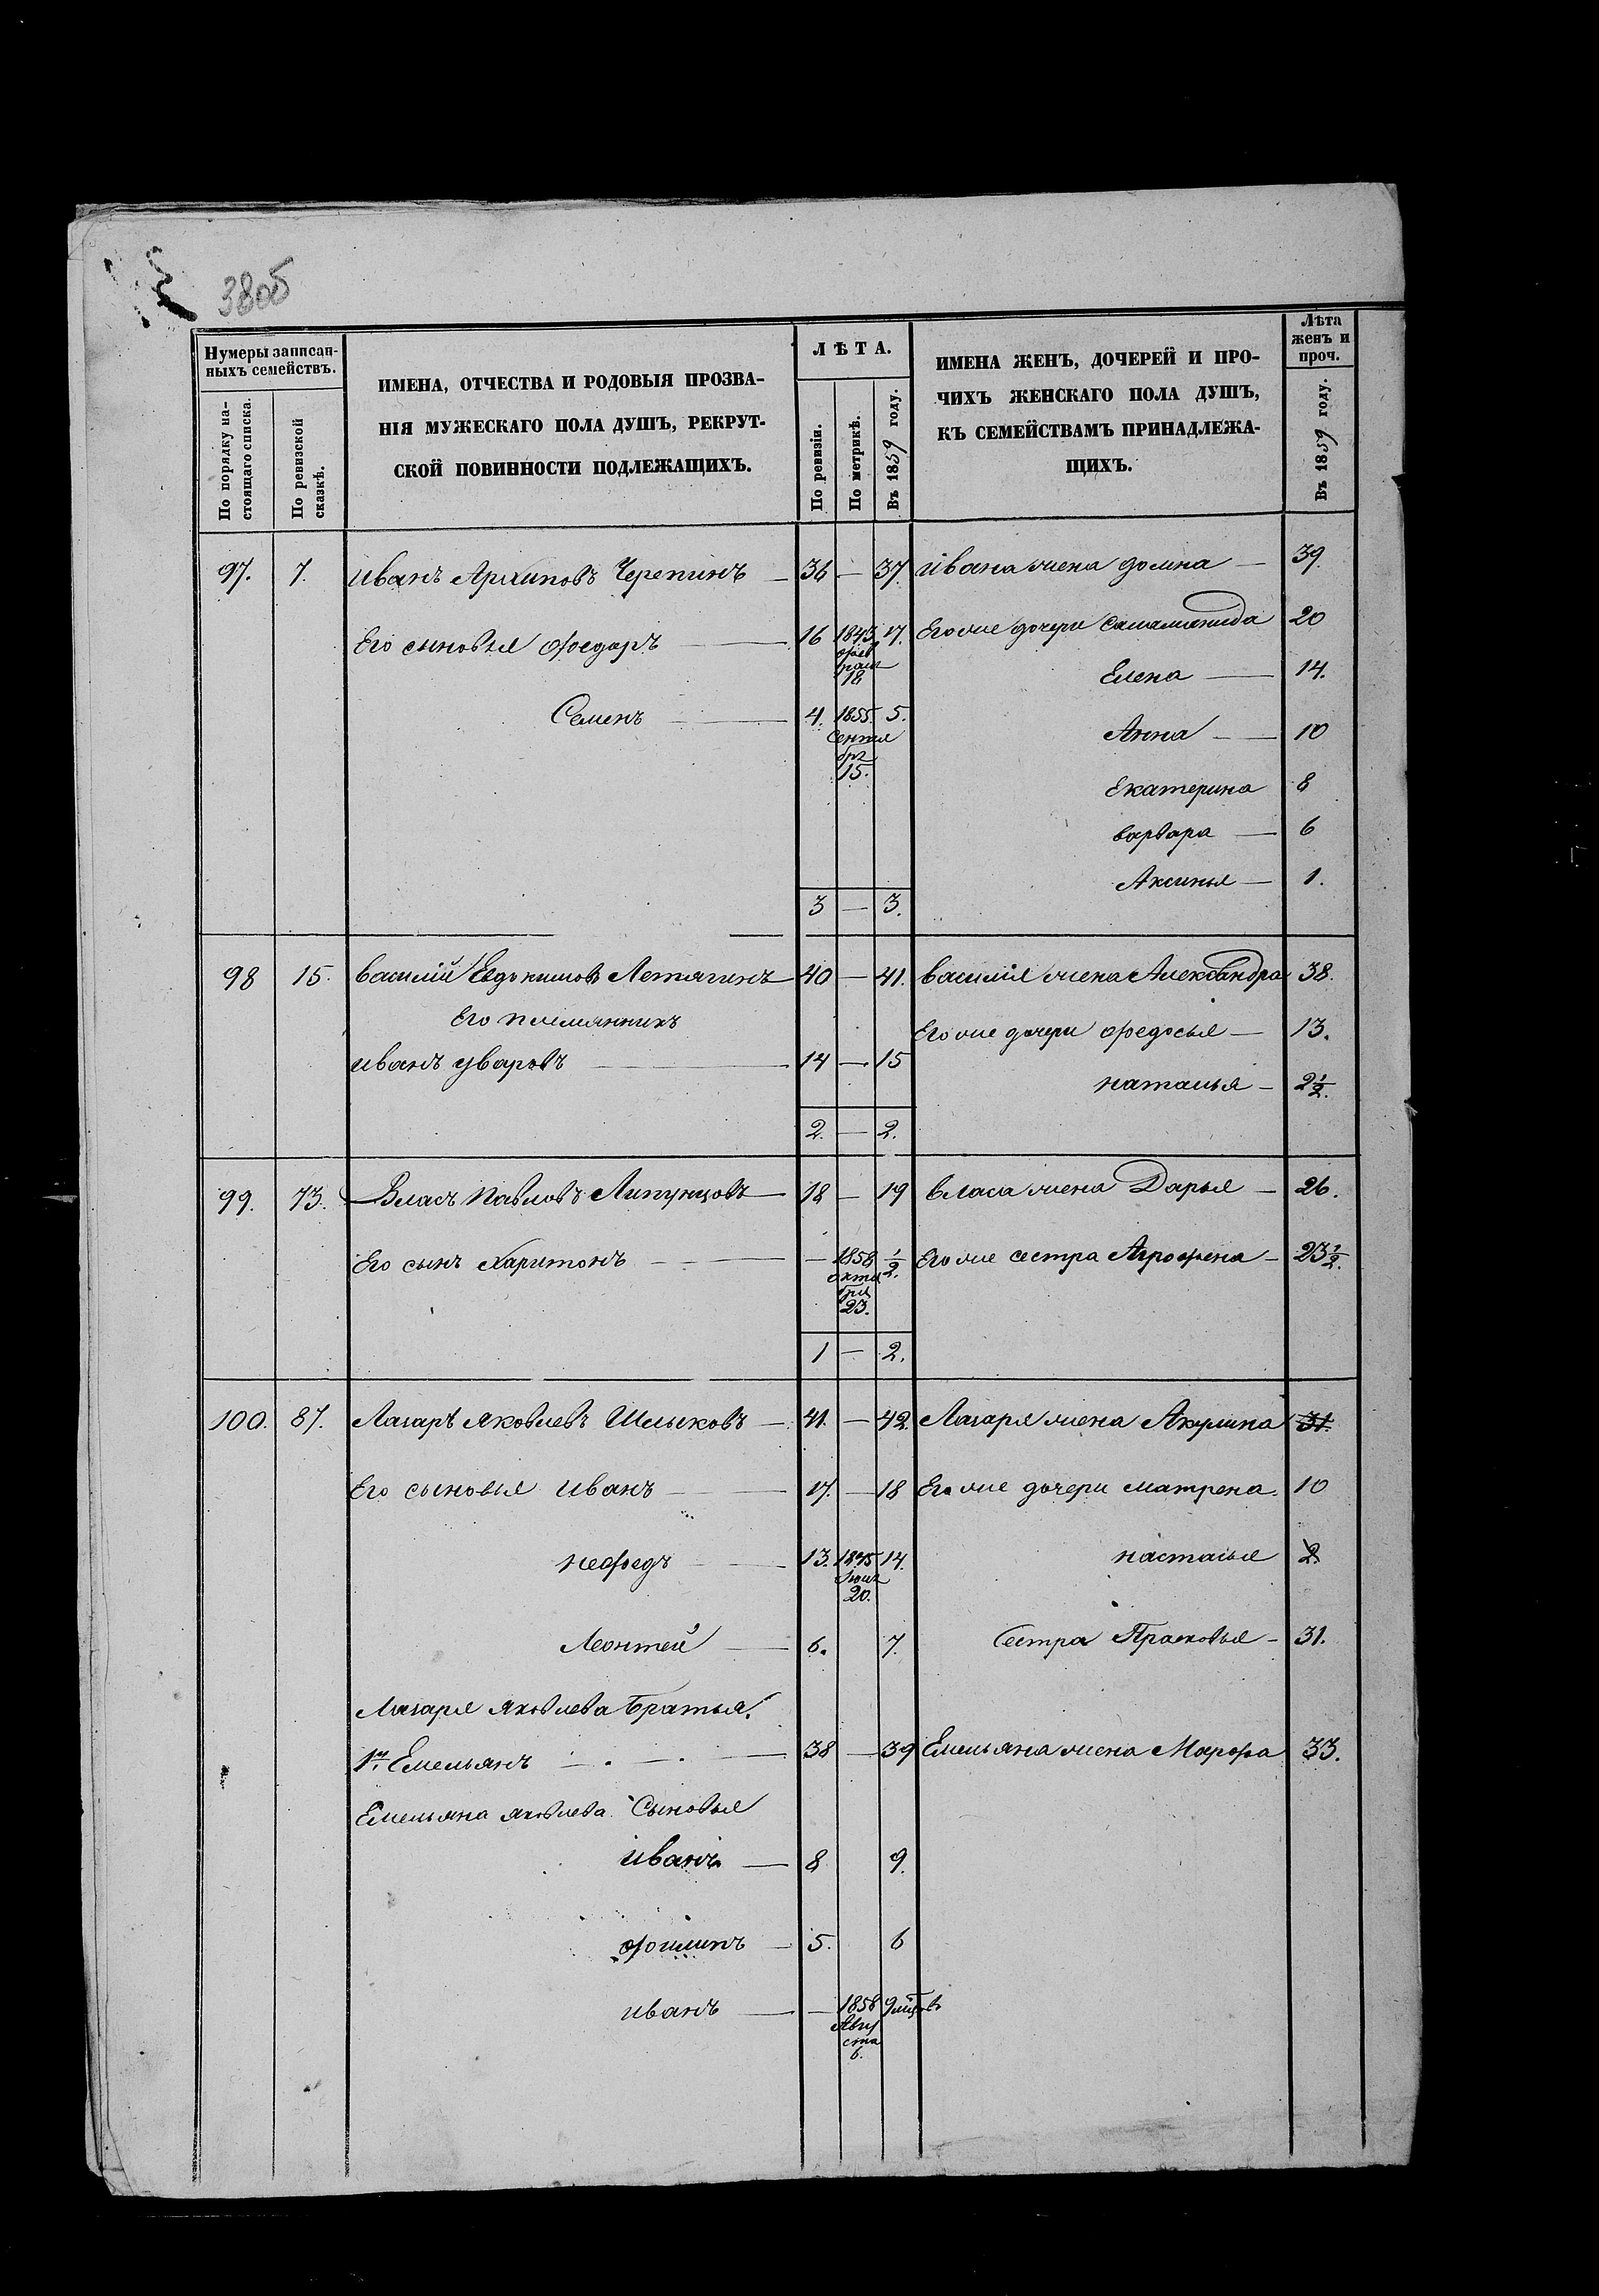 38об
Нумеры записан-
ныхъ семействъ.
По порядку на-
стоящаго списка.
По ревизской
сказкѣ.
ИМЕНА, ОТЧЕСТВА И РОДОВЫЯ ПРОЗВА-
НІЯ МУЖЕСКАГО ПОЛА ДУШЪ, РЕКРУТ-
СКОЙ ПОВИННОСТИ ПОДЛЕЖАЩИХЪ.
ЛѢТА.
По ревизіи.
По метрикѣ.
Въ 1859 году.
ИМЕНА ЖЕНЪ, ДОЧЕРЕЙ И ПРО-
ЧИХЪ ЖЕНСКАГО ПОЛА ДУШЪ,
КЪ СЕМЕЙСТВАМЪ ПРИНАДЛЕЖА-
ЩИХЪ.
Лѣта
женъ и
проч.
Въ 1859 году.
97. 7. Иванъ Архиповъ Черепинъ — 36 — 37. Ивана жена Домна — 39.
Его сыновья Ѳедоръ — 16 1843 17. Его же дочери 20
фев
рал
18
Елена — 14.
Семенъ — 4. 1855. 5.
Сентя
бря
15.
Анна — 10
Екатерина 8
Варвара — 6
Аксинья — 1.
3 — 3.
98 15. Василій Евдокимовъ Летягинъ 40 — 41. Василія жена Александра 38.
Его племянникъ
Его же дочери Ѳедосья — 13.
Иванъ Уваровъ — 14 — 15
Наталья — 2½.
2. — 2.
99. 73. Власъ Павловъ Липунцовъ — 18 — 19 Власа жена Дарья — 26.
Его сынъ Харитонъ — — 1858 ½. Его же сестра Агрофена — 23½.
октя
бря
23.
1 — 2.
100. 87. Лазарь Яковлевъ Шлыковъ — 41. — 42. Лазаря жена Акулина 31.
Его сыновья Иванъ — 17. — 18 Его же дочери Матрена. 10
Нефедъ — 13. 1845 14. Настасья 2
20.
Леонтей — 6. 7. Сестра Прасковья — 31.
Лазаря Яковлева братья.
1й Емельянъ — 38 — 39 Емельяна жена Марфа 33.
Емельяна Яковлева Сыновья
Иванъ — 8 9.
Филипъ — 5. 6
Иванъ — — 1858 9 мѣсяцовъ
Авгу
ста
6.